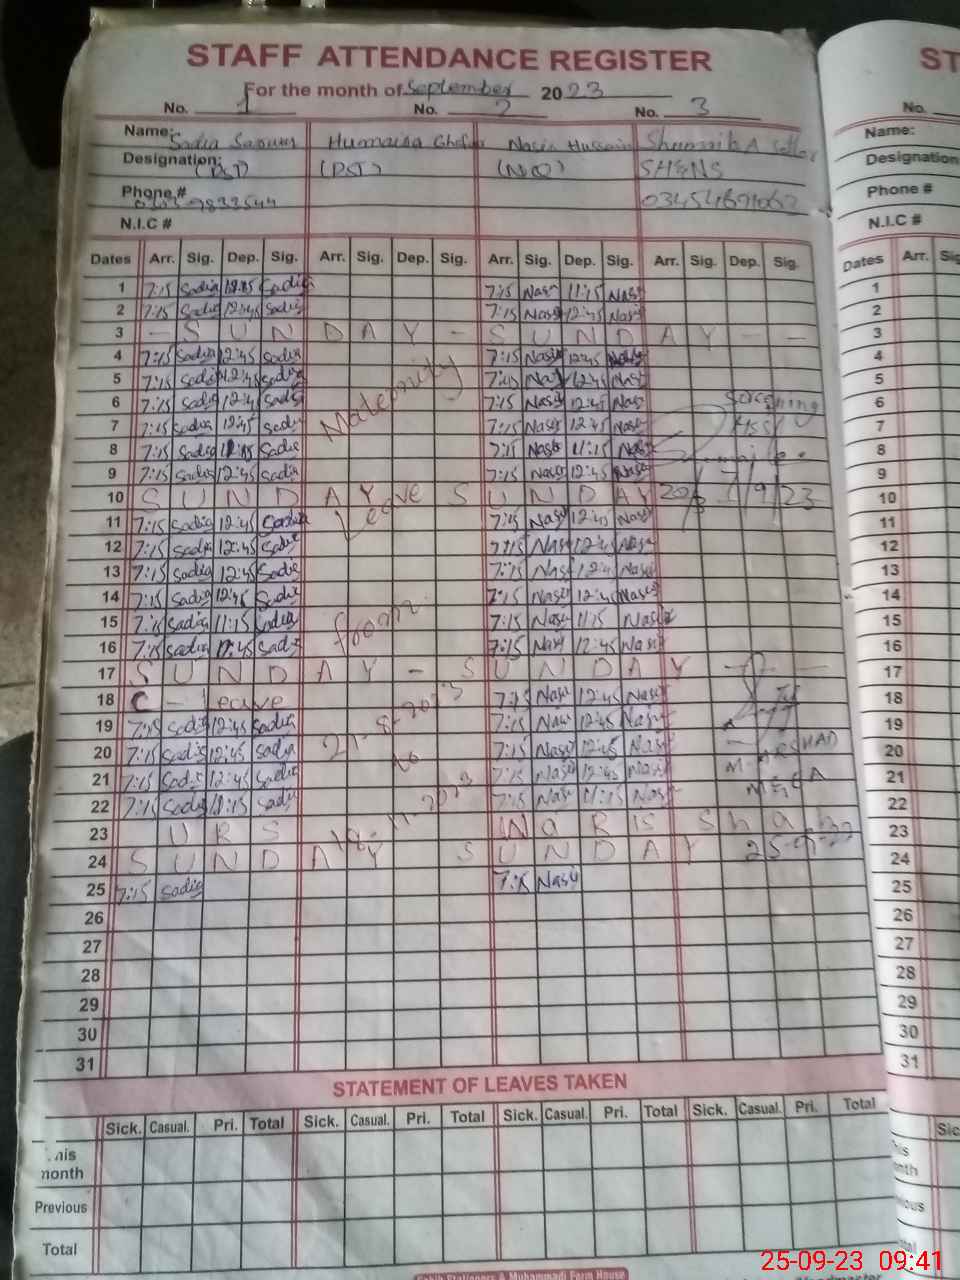 STAFF ATTENDANCE REGISTER
For the month of September 2023
No. 1 No. 2 No. 3
Name: Sadia Humaira Nasir Hussain
Designation: (PST) (PST) (N.Q) SH&NS
Phone #
N.I.C #
Dates Arr. Sig. Dep. Sig. Arr. Sig. Dep. Sig. Arr. Sig. Dep. Sig. Arr. Sig. Dep. Sig.
1 7:15 Sadia Sadia 7:15 Nasir 11:15 Nasir
2 7:15 Sadia 12:45 Sadia 7:15 Nasir 12:45 Nasir
3 - SUNDAY - SUNDAY - -
4 7:15 Sadia 12:45 Sadia 7:15 Nasir 12:45 Nasir
5 7:15 Sadia 12:45 Sadia Nasir 12:45 Nasir
6 7:15 Sadia 12:45 Sadia 7:15 Nasir 12:45 Nasir Screening
7 7:15 Sadia 12:45 Sadia Maternity 7:15 Nasir 12:45 Nasir
8 7:15 Sadia 11:15 Sadia 7:15 Nasir 11:15 Nasir
9 7:15 Sadia 12:45 Sadia 7:15 Nasir 12:45 Nasir
10 SUNDAY Leave SUNDAY 7/9/23
11 7:15 Sadia 12:45 Sadia 7:15 Nasir 12:45 Nasir
12 7:15 Sadia 12:45 Sadia 7:15 Nasir 12:45 Nasir
13 7:15 Sadia 12:45 Sadia 7:15 Nasir 12:45 Nasir
14 7:15 Sadia 12:45 Sadia 7:15 Nasir 12:45 Nasir
15 7:15 Sadia 11:15 Sadia from 7:15 Nasir 11:15 Nasir
16 7:15 Sadia 12:45 Sadia 7:15 Nasir 12:45 Nasir
17 SUNDAY - SUNDAY - - -
18 C - leave 7:15 Nasir 12:45 Nasir
19 7:15 Sadia 12:45 Sadia 21-8-2023 7:15 Nasir 12:45 Nasir
20 7:15 Sadia 12:45 Sadia to 7:15 Nasir 12:45 Nasir M. ARSHAD
21 7:15 Sadia 12:45 Sadia 7:15 Nasir 12:45 Nasir MEA
22 7:15 Sadia 11:15 Sadia 7:15 Nasir 11:15 Nasir
23 URS Waris Shah
24 SUNDAY SUNDAY
25 7:15 Sadia 7:15 Nasir
26
27
28
29
30
31
STATEMENT OF LEAVES TAKEN
Sick. Casual. Pri. Total Sick. Casual. Pri. Total Sick. Casual. Pri. Total Sick. Casual. Pri. Total
month
Previous
Total
No.
Name:
Designation
Phone #
N.I.C #
Dates Arr.
1
2
3
4
5
6
7
8
9
10
11
12
13
14
15
16
17
18
19
20
21
22
23
24
25
26
27
28
29
30
31
25-09-23 09:41